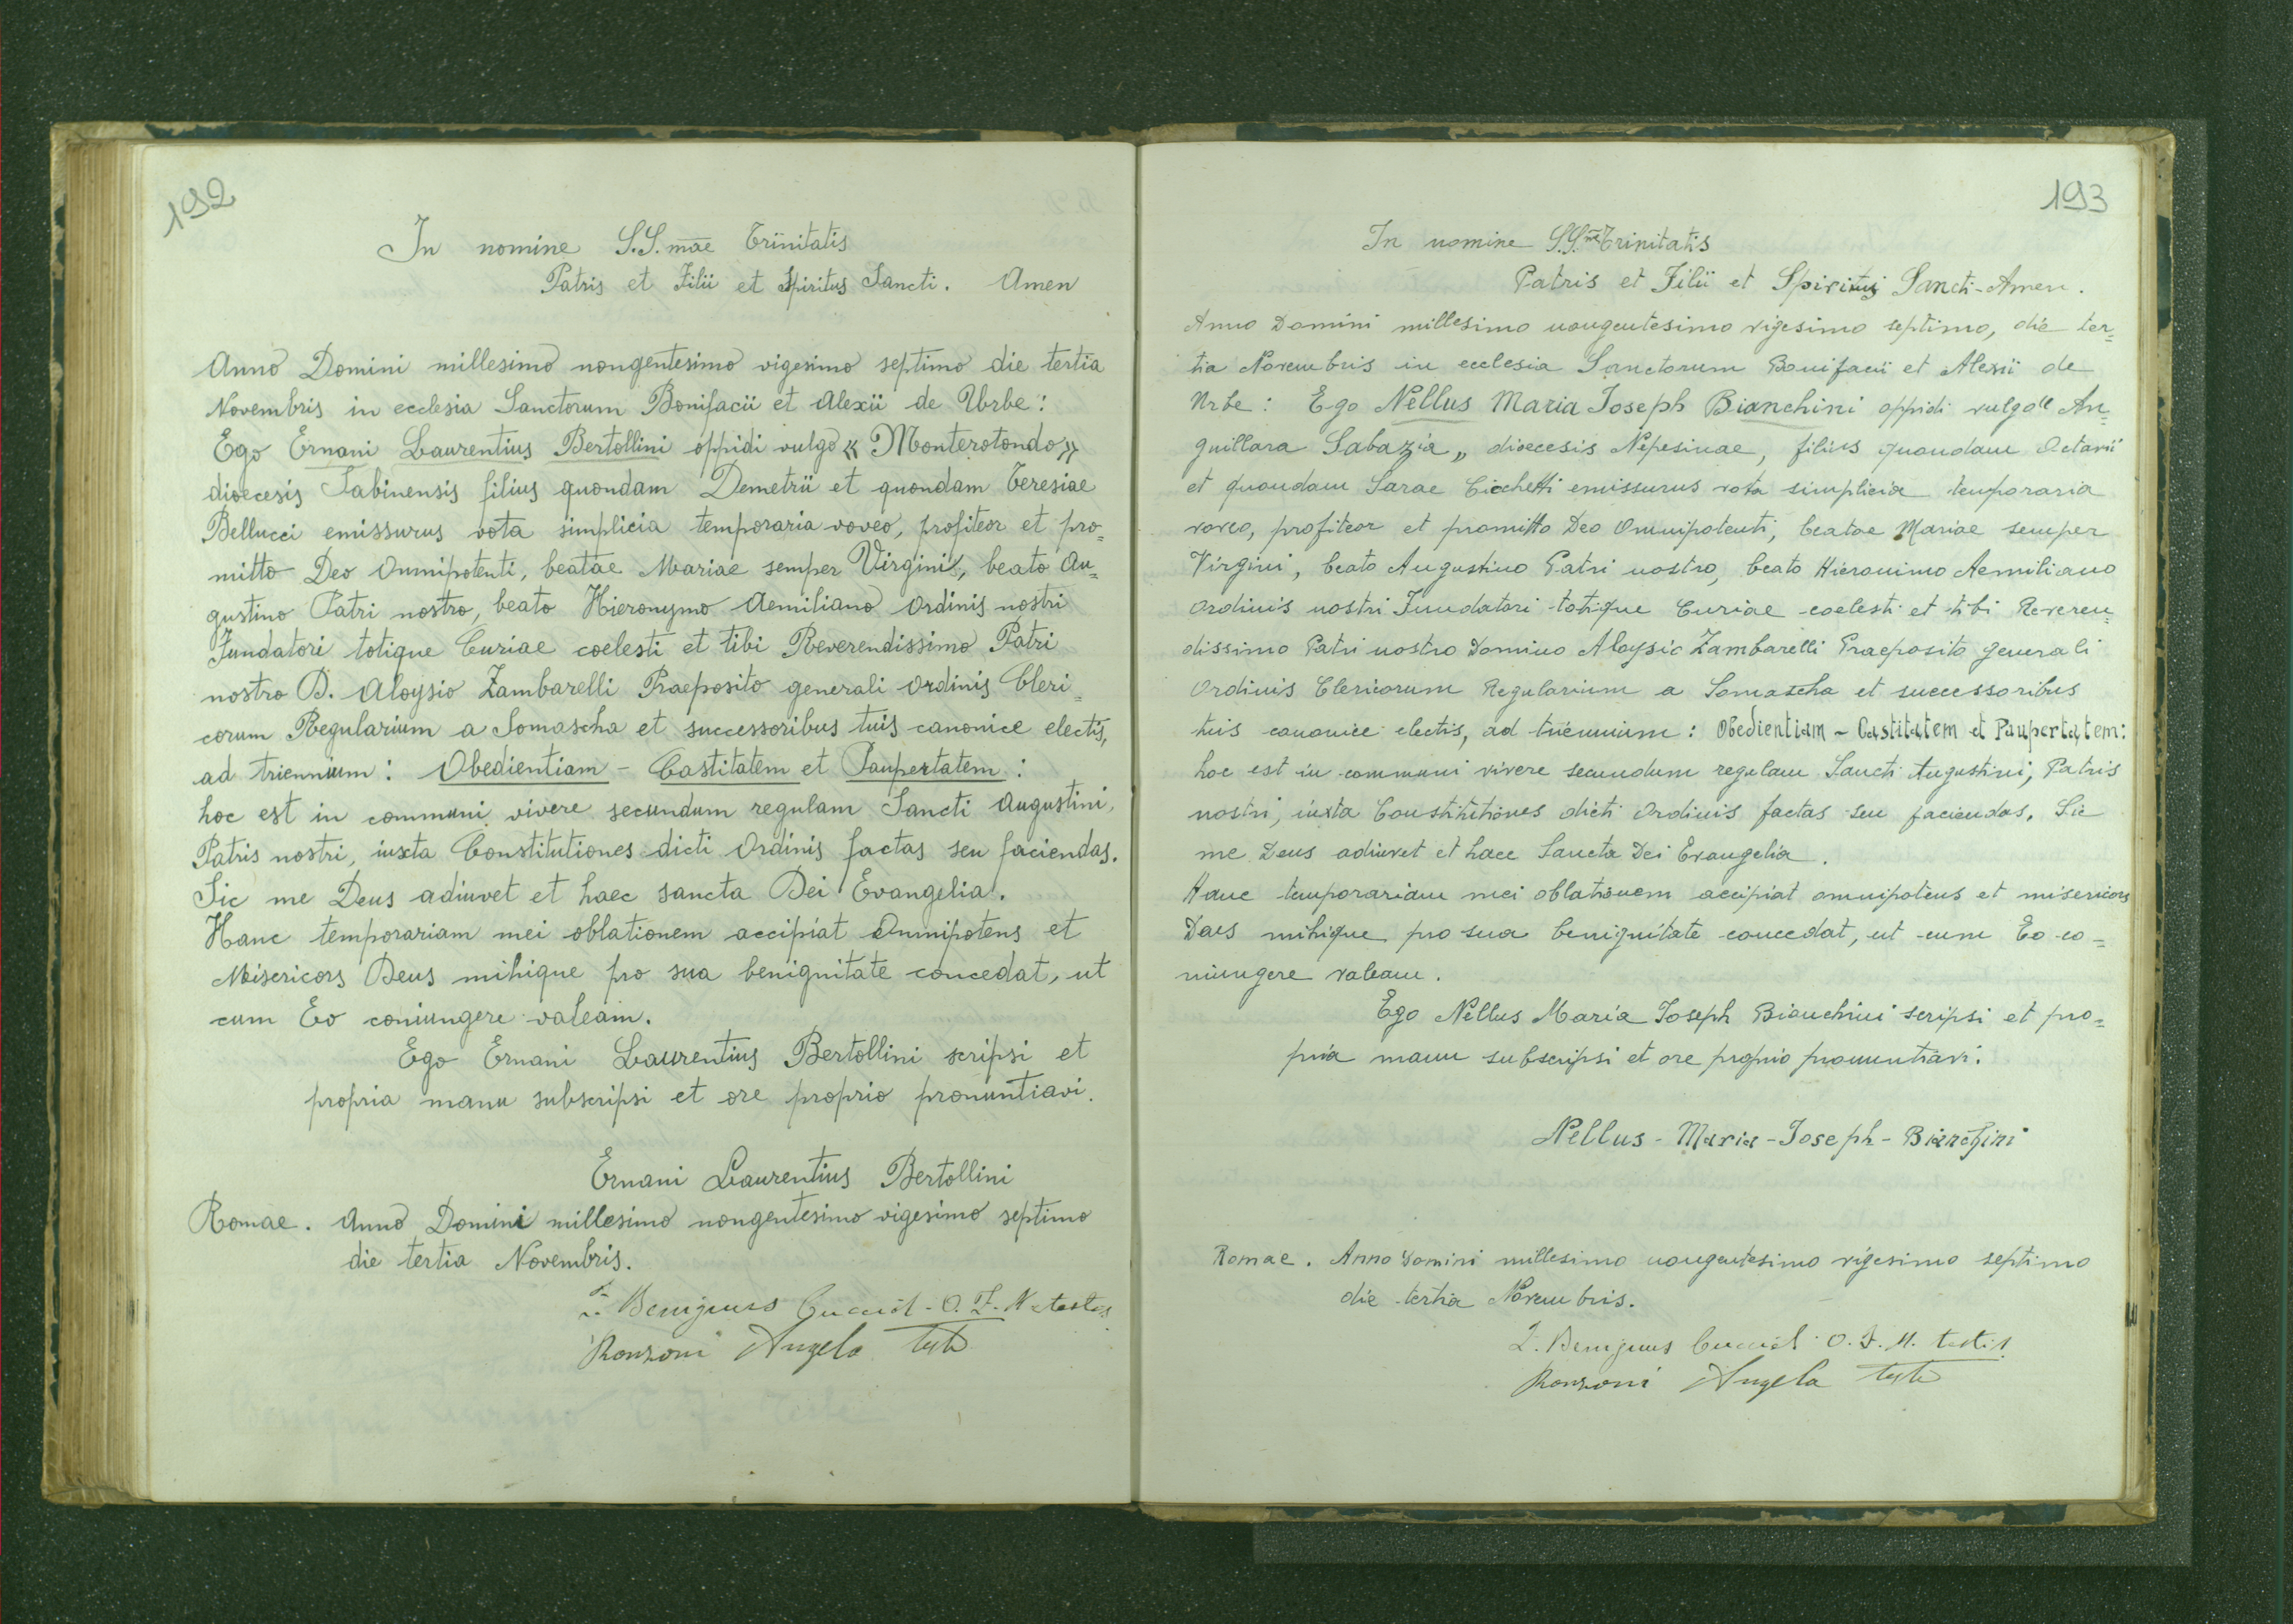 192
In nomine S.S.mae Trinitatis
Patris et Filii et Spiritus Sancti. Amen
Anno Domini millesimo nongentesimo vigesimo septimo die tertia
Novembris in ecclesia Sanctorum Bonifacii et Alexii de Urbe:
Ego Ernani Laurentius Bertollini oppidi vulgo « Monterotondo »
dioecesis Sabinensis filius quondam Demetrii et quondam Teresiae
Bellucci emissurus vota simplicia temporaria voveo, profiteor et pro=
mitto Deo Omnipotenti, beatae Mariae semper Virgini, beato Au=
gustino Patri nostro, beato Hieronymo Aemiliano Ordinis nostri
Fundatori totique Curiae coelesti et tibi Reverendissimo Patri
nostro D. Aloysio Zambarelli Praeposito generali Ordinis Cleri=
corum Regularium a Somascha et successoribus tuis canonice electis,
ad triennium: Obedientiam - Castitatem et Paupertatem:
hoc est in communi vivere secundum regulam Sancti Augustini,
Patris nostri, iuxta Constitutiones dicti Ordinis factas seu faciendas.
Sic me Deus adiuvet et haec sancta Dei Evangelia.
Hanc temporariam mei oblationem accipiat Omnipotens et
Misericors Deus mihique pro sua benignitate concedat, ut
cum Eo coniungere valeam.
Ego Ernani Laurentius Bertollini scripsi et
propria manu subscripsi et ore proprio pronuntiavi.
Ernani Laurentius Bertollini
Romae. Anno Domini millesimo nongentesimo vigesimo septimo
die tertia Novembris.
Benignus O. F. M. testis
Ronzoni Angelo
193
In nomine S.S.mae Trinitatis
Patris et Filii et Spiritus Sancti-Amen.
Anno Domini millesimo nongentesimo vigesimo septimo, die ter=
tia Novembris in ecclesia Sanctorum Bonifacii et Alexii de
Urbe: Ego Nellus Maria Joseph Bianchini oppidi vulgo " An=
guillara Sabazia „ dioecesis Nepesinae, filius quondam Octavii
et quondam Sarae Cicchetti emissurus vota simplicia temporaria
voveo, profiteor et promitto Deo Omnipotenti, beatae Mariae semper
Virgini, beato Augustino Patri nostro, beato Hieronimo Aemiliano
Ordinis nostri Fundatori totique Curiae coelesti et tibi Reveren=
dissimo Patri nostro Domino Aloysio Zambarelli Praeposito generali
Ordinis Clericorum Regularium a Somascha et successoribus
tuis canonice electis, ad triennium: Obedientiam - Castitatem et Paupertatem:
hoc est in communi vivere secundum regulam Sancti Augustini, Patris
nostri, iuxta Constitutiones dicti Ordinis factas seu faciendas. Sic
me Deus adiuvet et haec Sancta Dei Evangelia.
Hanc temporariam mei oblationem accipiat omnipotens et misericors
Deus mihique pro sua benignitate concedat, ut cum Eo co=
niungere valeam.
Ego Nellus Maria Joseph Bianchini scripsi et pro=
pria manu subscripsi et ore proprio pronuntiavi.
Nellus - Maria - Joseph - Bianchini
Romae. Anno Domini millesimo nongentesimo vigesimo septimo
die tertia Novembris.
Benignus O. F. M. testis
Ronzoni Angelo